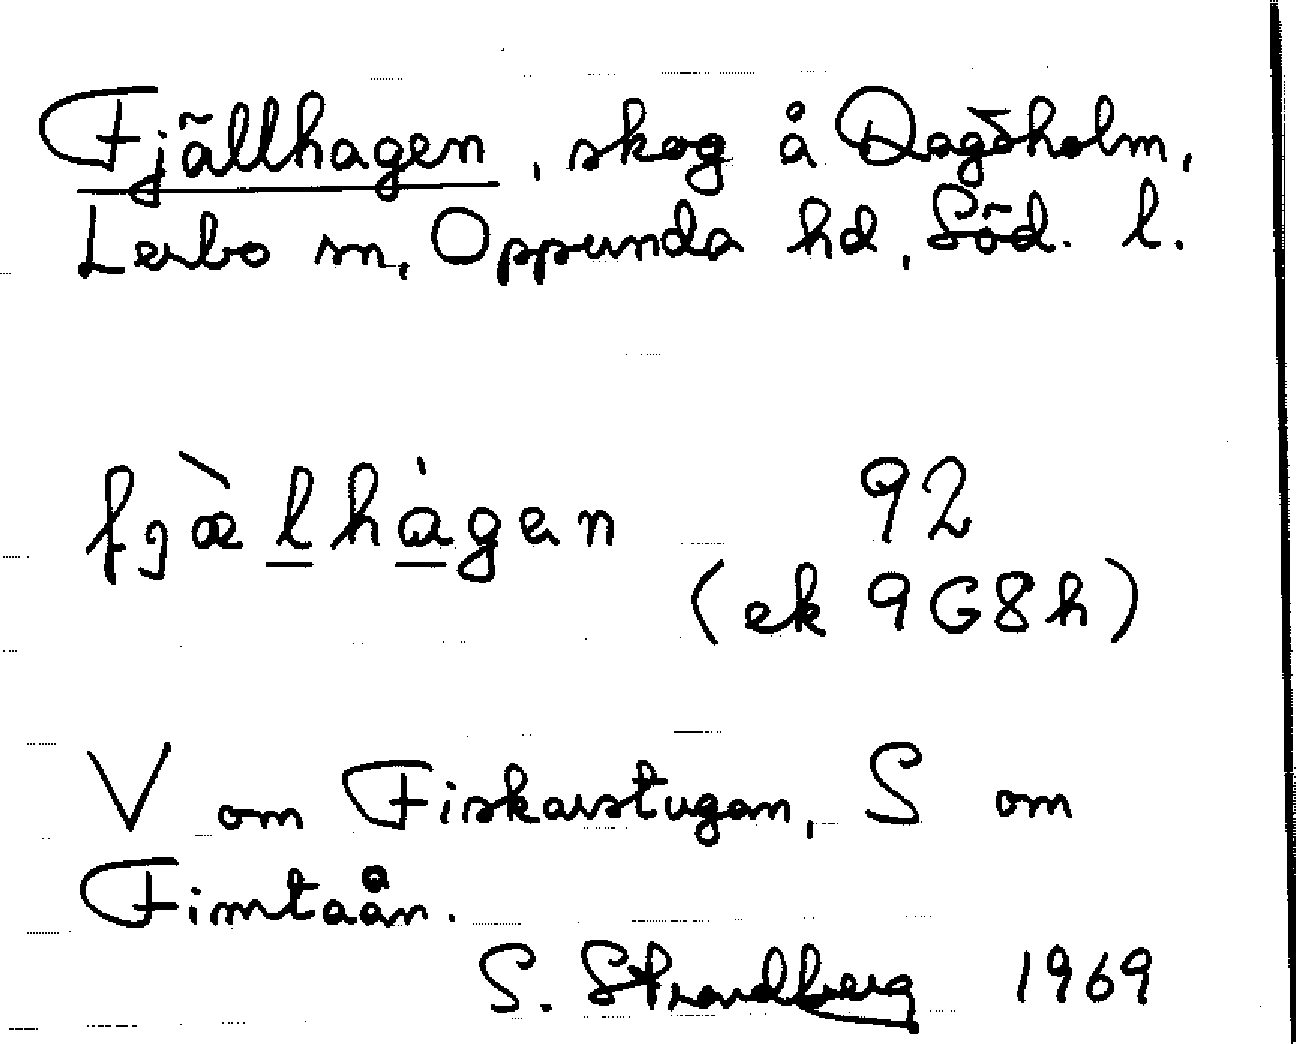 Fjällhagen, skog å Dagsholm,
Lerbo sn, Oppunda hd, Söd. l.
fjæ̀lhàgen 92
(ek 9G8h)
V om Fiskarstugan, S om
Fimtaån.
S. Strandberg 1969